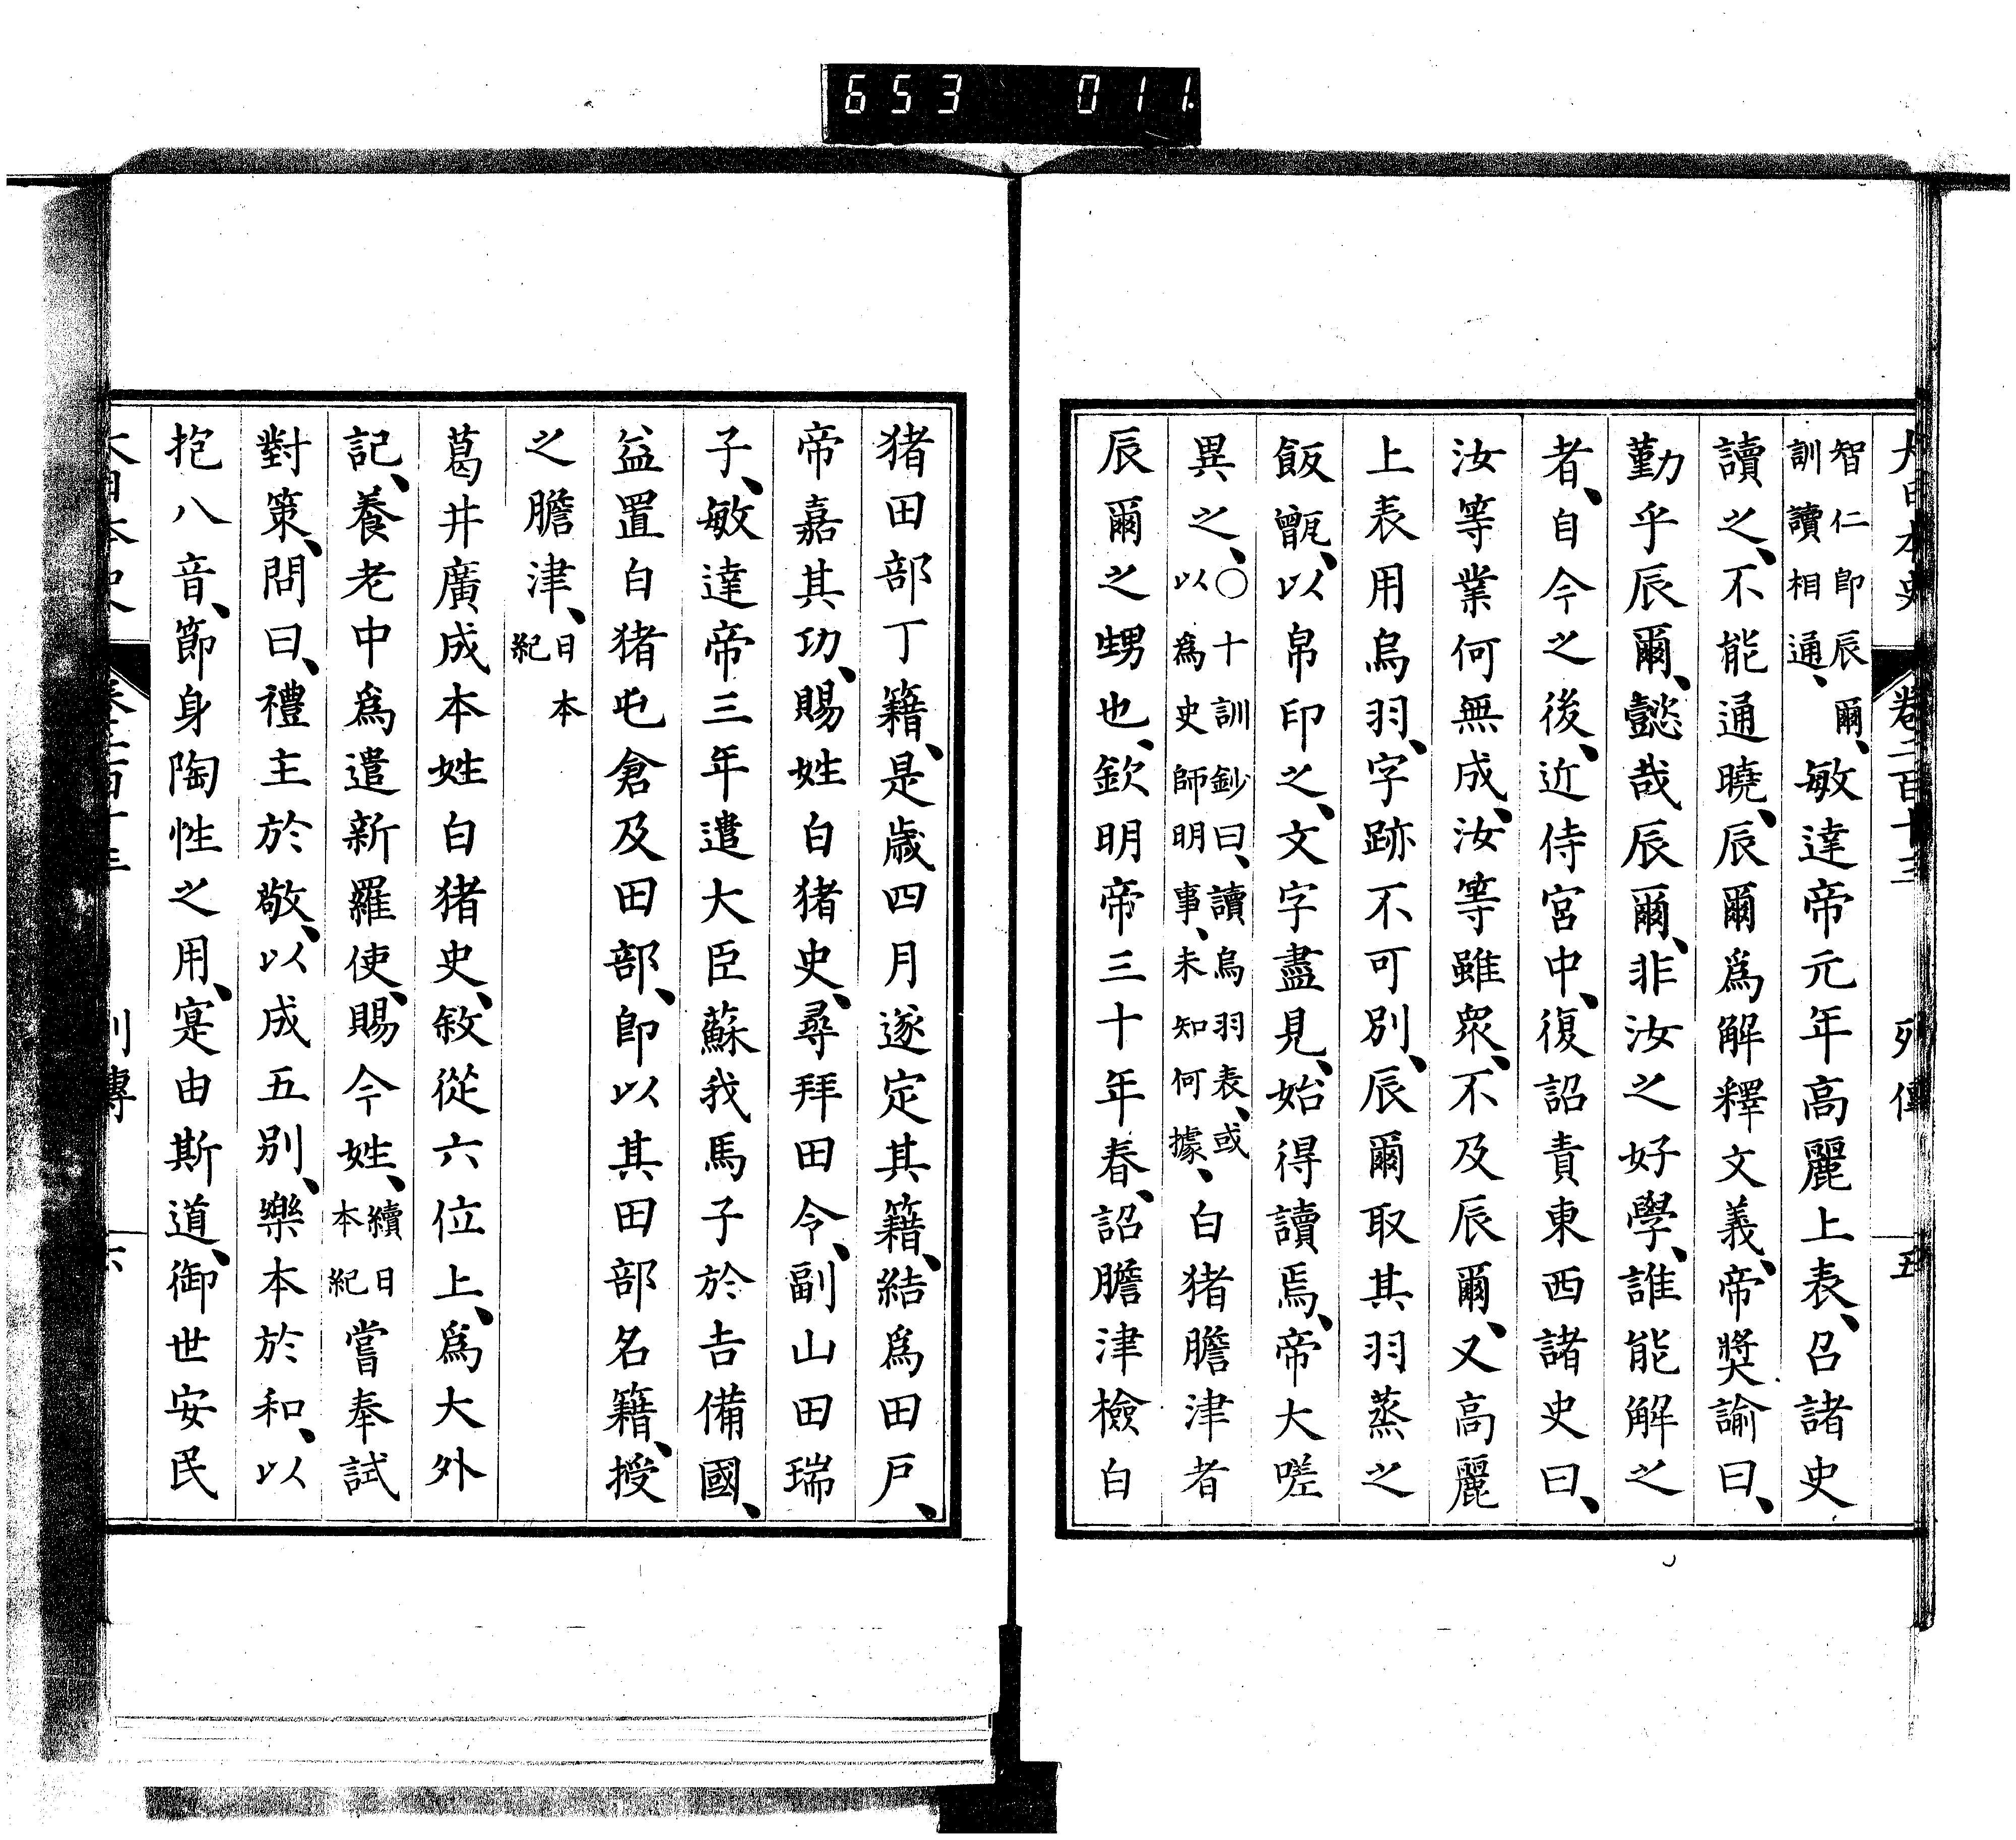 653 011.
大日本史 卷二百十三 列傳 五
智仁即辰爾、訓讀相通、敏達帝元年高麗上表、召諸史
讀之、不能通曉、辰爾爲解釋文義、帝奬諭曰、
勤乎辰爾、懿哉辰爾、非汝之好學、誰能解之
者、自今之後、近侍宮中、復詔責東西諸史曰、
汝等業何無成、汝等雖衆、不及辰爾、又高麗
上表用烏羽、字跡不可別、辰爾取其羽蒸之
飯甑、以帛印之、文字盡見、始得讀焉、帝大嗟
異之、○十訓鈔曰、讀烏羽表、或以爲史師明事、未知何據、白猪膽津者
辰爾之甥也、欽明帝三十年春、詔膽津檢白
猪田部丁籍、是歲四月遂定其籍、結爲田戶、
帝嘉其功、賜姓白猪史、尋拜田令、副山田瑞
子、敏達帝三年遣大臣蘇我馬子於吉備國、
益置白猪屯倉及田部、即以其田部名籍、授
之膽津、日本紀
葛井廣成本姓白猪史、敘從六位上、爲大外
記、養老中爲遣新羅使、賜今姓、續日本紀嘗奉試
對策、問曰、禮主於敬、以成五別、樂本於和、以
抱八音、節身陶性之用、寔由斯道、御世安民
大日本史 卷二百十三 列傳 六